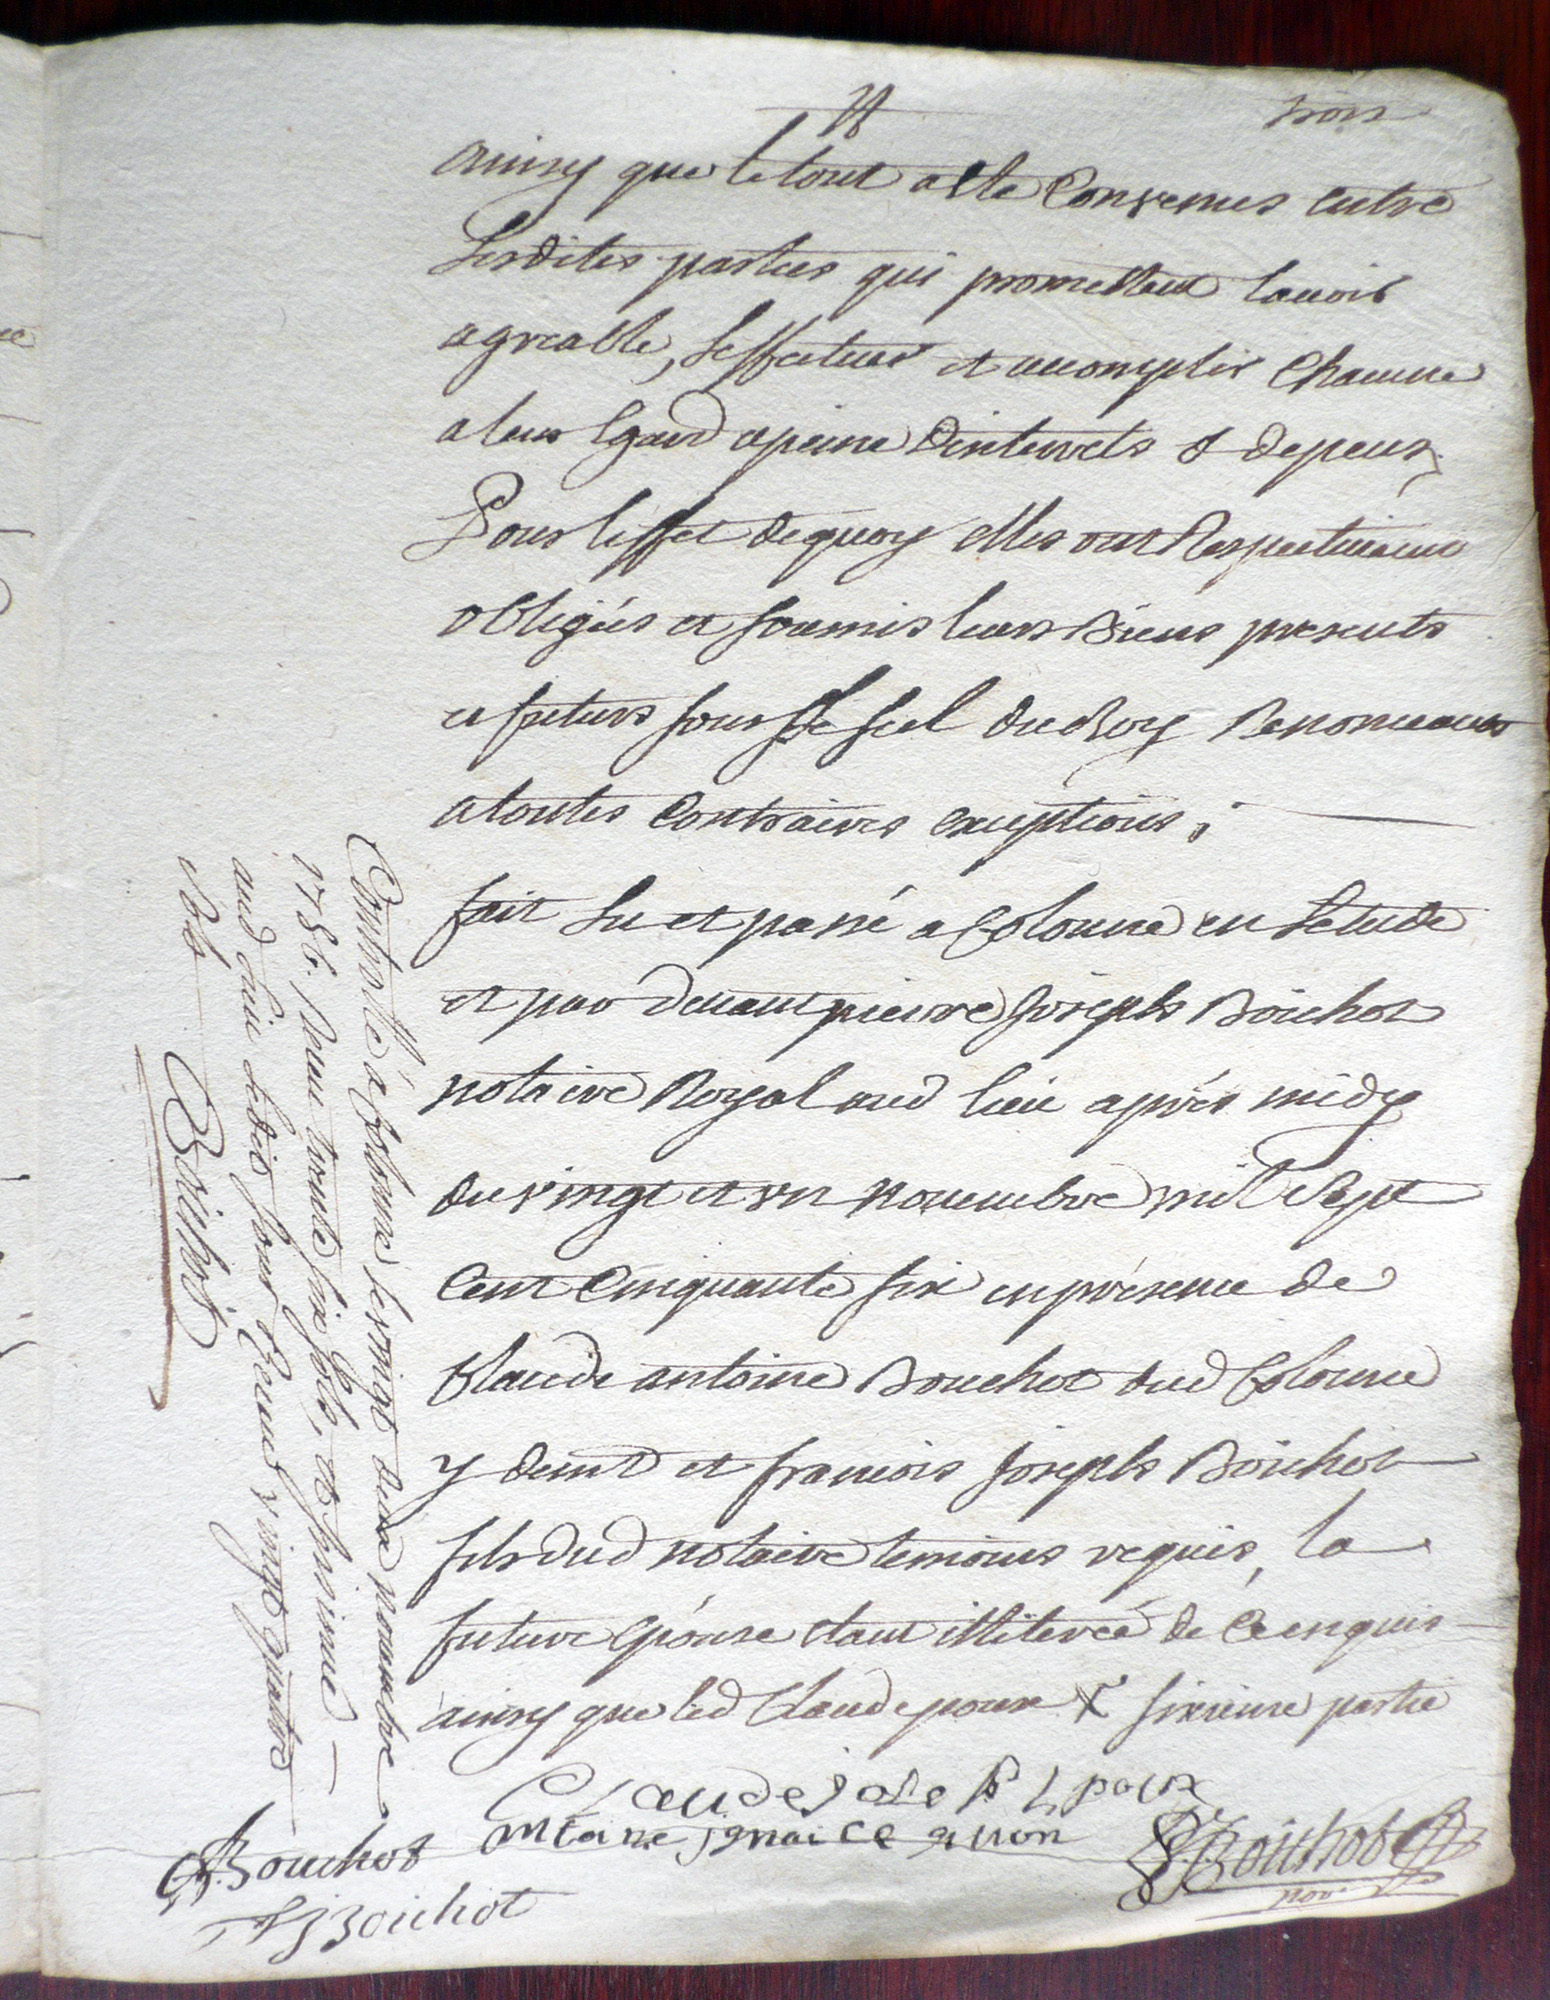 trois
ainsy que letout a eté Convenus entre
Lesdites parties qui promettent lavoir
agreable, Leffectuer et accomplir Chacune
a leur Egard apeine dinterrets & depens,
Pour leffet dequoy elles ont Respectivement
obligées et soumis leurs Biens presents
et futurs sous Le scel du Roy Renonceants
atoutes Contraires exceptions;
fait Lu et passé a Colonne en Letude
et par devant pierre Joseph Boichot
notaire Royal aud lieu après midy
du vingt et un novembre mil Sept
Cent Cinquante six en présence de
Claude antoine Bouchot dud Colonne
y demt et francois Joseph Boichot
fils dud notaire temoins requis, la
future Epouse étant illiterée de ce enquis
ainsy que led Claude poux sixieme partie
Claude Josep poux
Boichot
not
A Bouchot
f J Boichot
Controllé á Colonne, le vingt deux novembre
1756. Reçu trente six sols, et insinué
aud lieu Ledit jour Receu vingt quatre
sols
Boichot